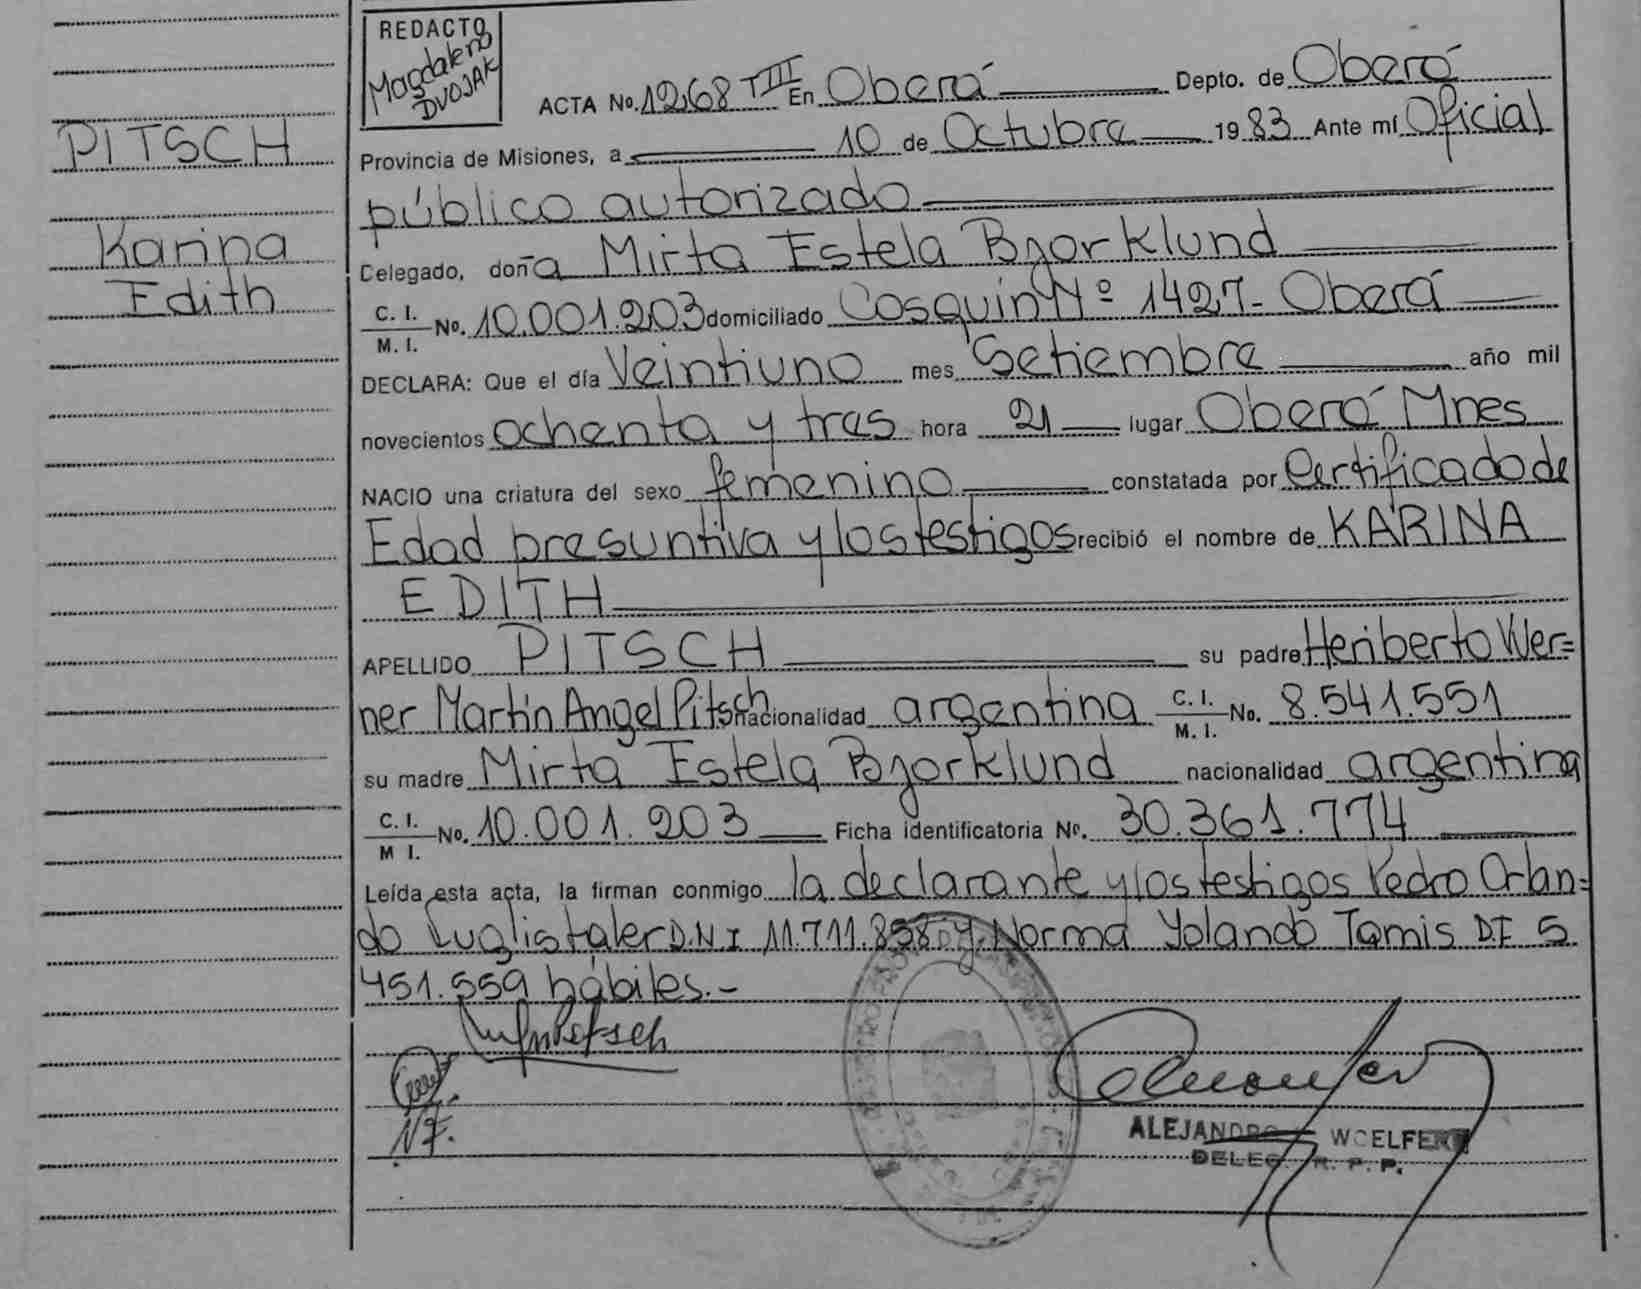 REDACTO
Magdalena
DVOJAK
ACTA No. 1268 TIII En Oberá Depto. de Oberá
PITSCH
Provincia de Misiones, a 10 de Octubre 1983 Ante mí Oficial
público autorizado
Karina
Celegado, doña Mirta Estela Bjorklund
Edith
C. I.
M. I. No. 10.001.203 domiciliado Cosquín Nº 1427- Oberá
DECLARA: Que el día Veintiuno mes Setiembre año mil
novecientos ochenta y tres hora 21 lugar Oberá Mnes
NACIO una criatura del sexo femenino constatada por Certificado de
Edad presuntiva y los testigos recibió el nombre de KARINA
EDITH
APELLIDO PITSCH su padre Heriberto Wer=
ner Martín Angel Pitsch nacionalidad argentina C. I. M. I. No. 8.541.551
su madre Mirta Estela Bjorklund nacionalidad argentina
C. I.
M I. No. 10.001.203 Ficha identificatoria No. 30.361.774
Leída esta acta, la firman conmigo la declarante y los testigos Pedro Orlan=
do DNI 11.711.858 y Norma Yolanda Tamis D.F 5
451.559 hábiles.-
N.F.
ALEJANDRO WOELFERT
DELEG. R. P. P.